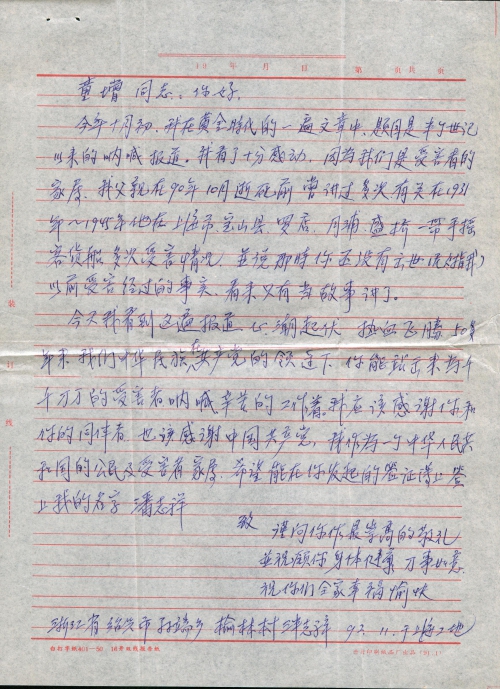 19 年 月 日 第 页共 页
董增 同志：你好，
今年十月初，我在黄金时代的一遍文章中，题目是半个世记
以来的呐喊报道。我看了十分感动，因为我们是受害者的
家属，我父亲在90年10月逝死前曾讲过多次有关在1931
年～1945年他在上海市宝山县 罗店、月浦 盛桥一带手摇
客货船多次受害情况 並说那时你还没有去世
以前受害经过的事实，看来只有当故事讲了。
今天我看到这遍报道，心潮起伏 热血飞腾 50多
年来我们中华民族在共产党的领连下，你能站出来为千
千万万的受害者呐喊辛苦的工作着，我应该感谢你和
你的同伴者 也该感谢中国共产党，我作为一个中华人民共
和国的公民及受害者家属，希望能在你发起的签证书上签
上我的名字 潘志祥
致
谨向你作最崇高的敬礼
並祝愿你身体健康 万事如意
祝你们全家幸福愉快
浙江省绍兴市孙端乡榆林村 潘志祥 92.11. 于上海工地
装
订
线